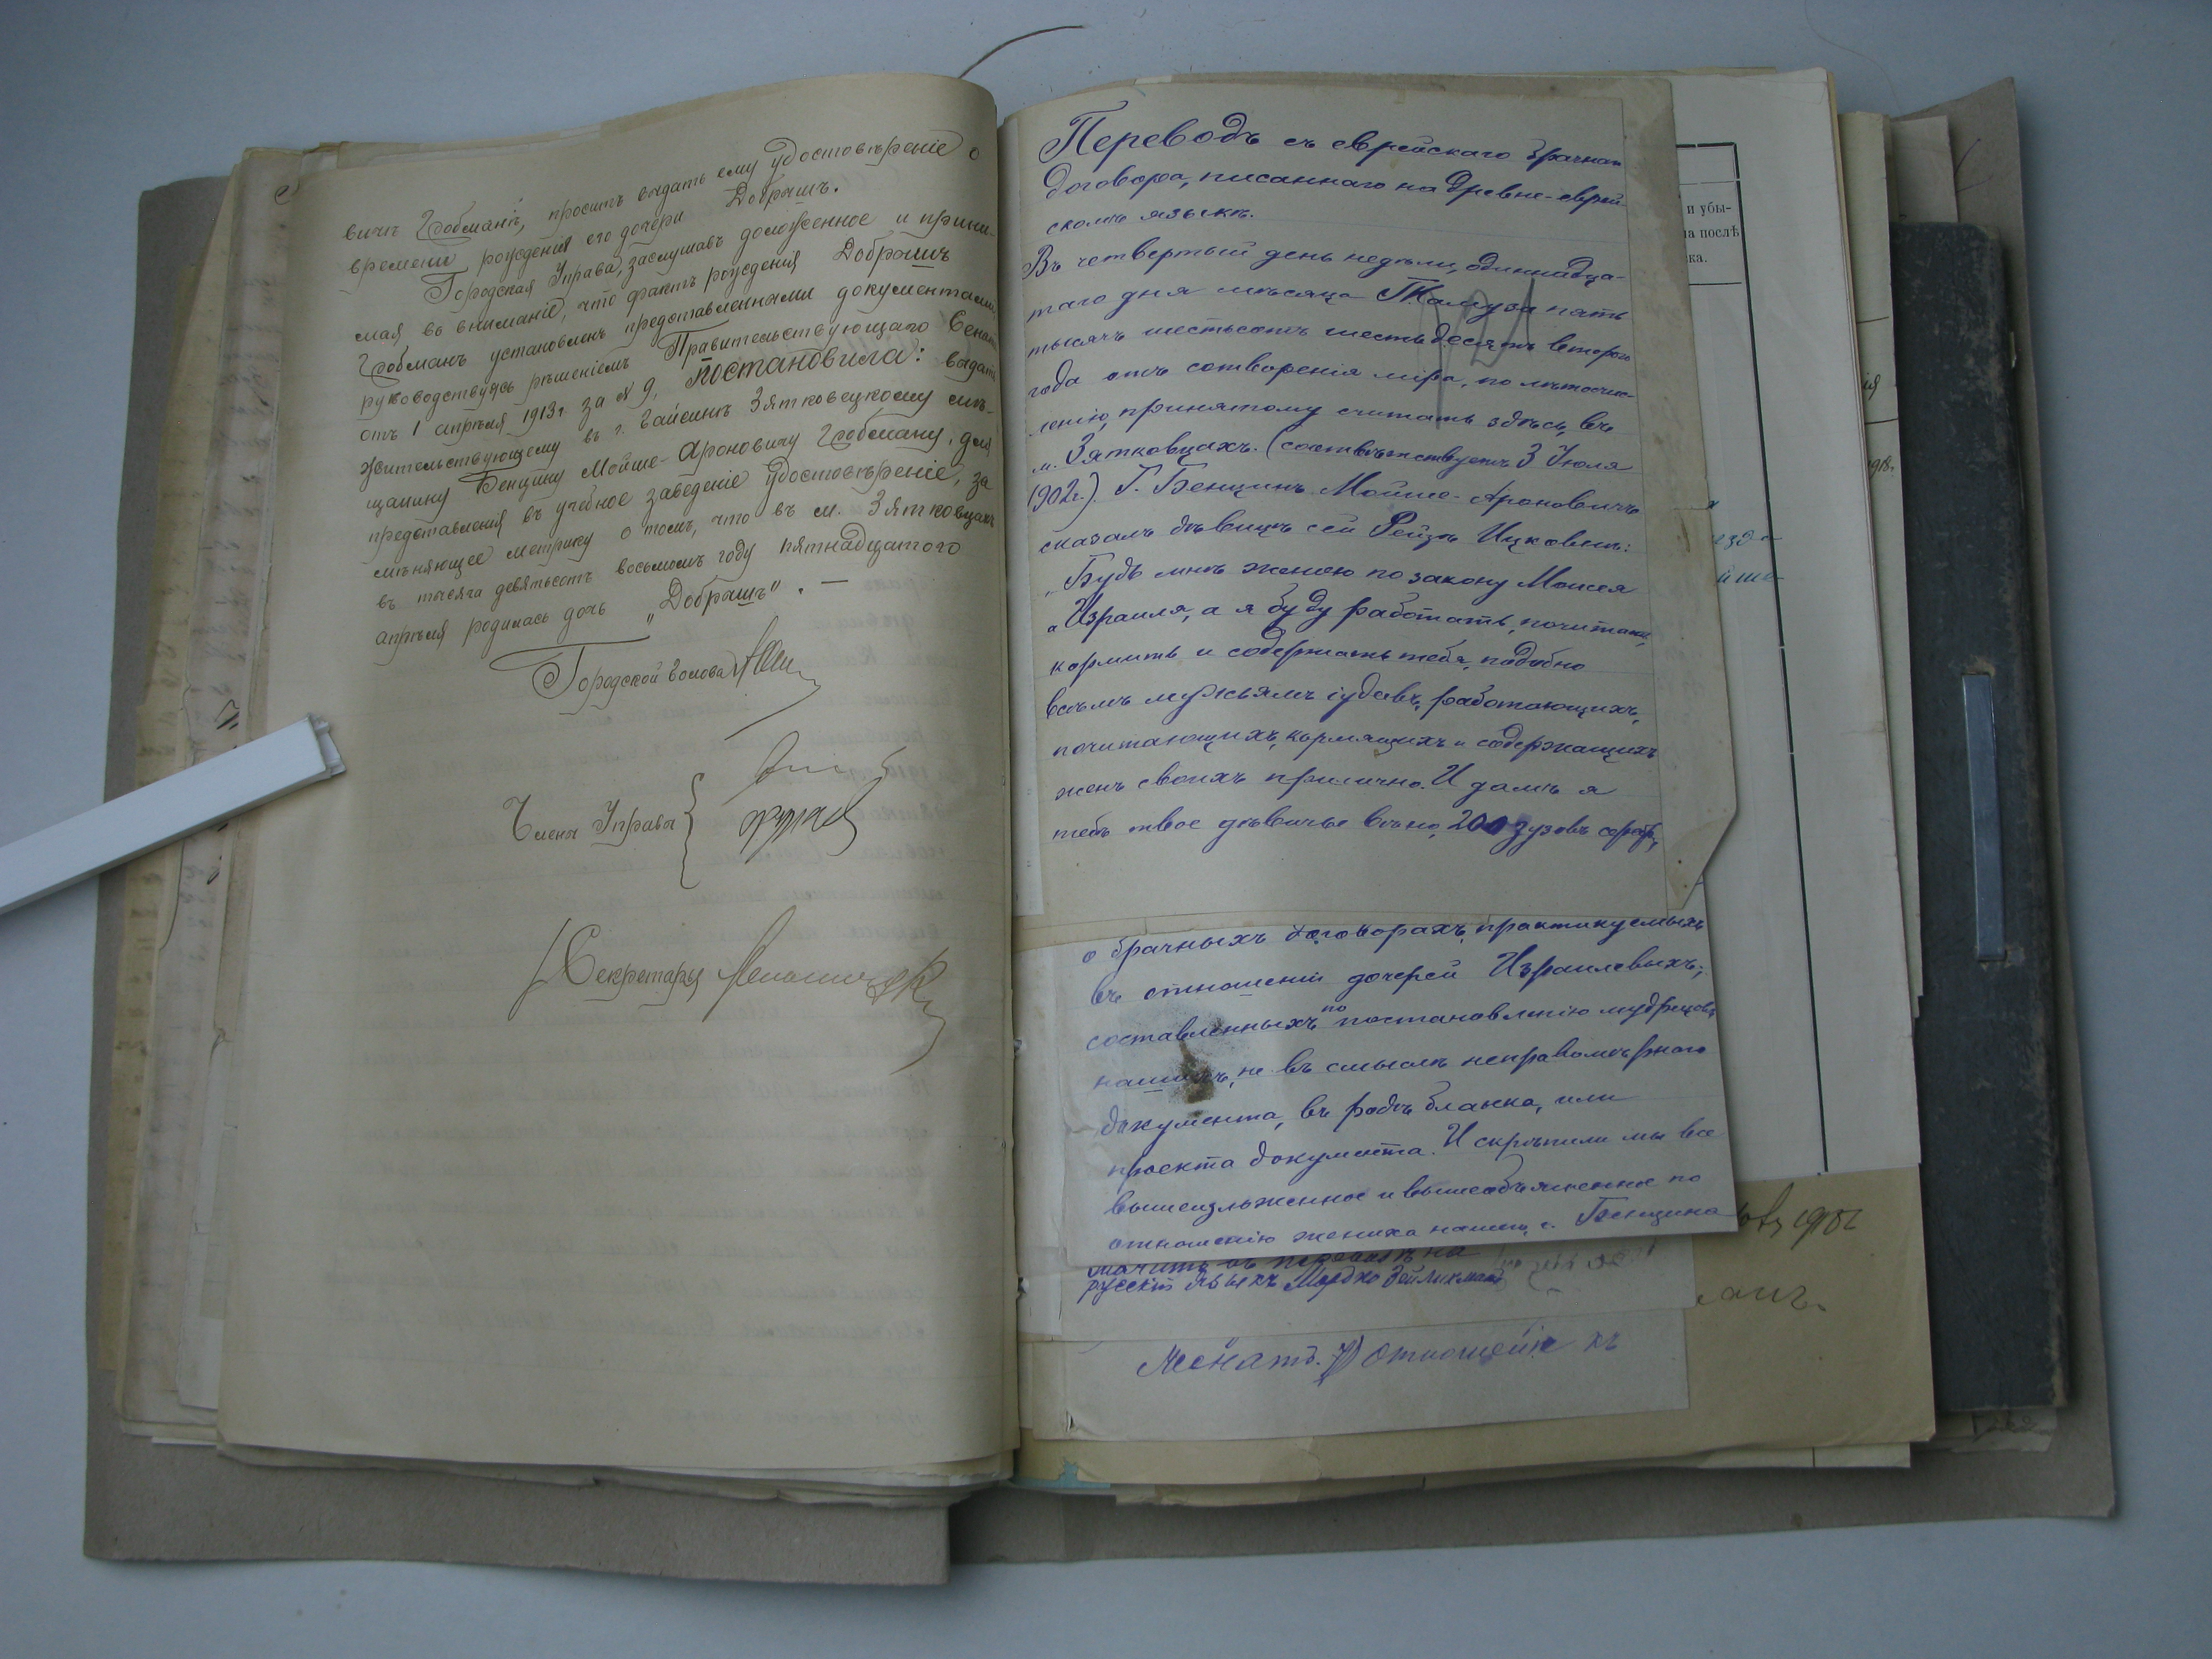 вичъ Гробманъ, проситъ выдать ему удостовѣреніе о
времени рожденія его дочери Добрышъ.
Городская Управа, заслушавъ доложенное и прини-
мая во вниманіе, что фактъ рожденія Добрышъ
Гробманъ установленъ представленными документами,
руководствуясь рѣшеніемъ Правительствующаго Сената
отъ 1 апрѣля 1913 г. за № 9, постановила: выдать
жительствующему въ г. Гайсинѣ Зятковецкому мѣ-
щанину Бенціину Мойше-Ароновичу Гробману, для
представленія въ учебное заведеніе удостовѣреніе, за-
мѣняющее метрику о томъ, что въ м. Зятковцахъ
въ тысяча девятьсотъ восьмомъ году пятнадцатого
апрѣля родилась дочь „Добрышъ". —
Городской Голова
Члены Управы
Секретарь
Переводъ съ еврейскаго брачнаго
договора, писаннаго на древне-еврей-
скомъ языкѣ.
Въ четвертый день недѣли, одиннадца-
таго дня мѣсяца Тамуза пять
тысячъ шестьсотъ шестьдесятъ второго
года отъ сотворенія міра, по лѣтосчис-
ленію, принятому считать здѣсь, въ
м. Зятковцахъ. (соотвѣтствуетъ 3 Іюля
1902 г.). Г. Бенціинъ Мойше-Ароновичъ
сказалъ дѣвицѣ сей Рейзѣ Ицковнѣ:
„Будь мнѣ женою по закону Моисея
и Израиля, а я буду работать, почитать,
кормить и содержать тебя, подобно
всѣмъ мужьямъ іудеевъ, работающихъ,
почитающихъ, кормящихъ и содержащихъ
женъ своихъ прилично. И дамъ я
тебѣ твое дѣвичье вѣно, 200 зузовъ серебр.,
о брачныхъ договорахъ, практикуемыхъ
въ отношеніи дочерей Израилевыхъ,
составленныхъ по постановленію мудрецовъ
нашихъ, не въ смыслѣ неправомѣрнаго
документа, въ родѣ бланка, или
проекта документа. И скрѣпили мы все
вышеизложенное и вышеобъясненное по
отношенію жениха нашего, г. Бенціина
значитъ въ переводѣ на
русскій языкъ Мордко Зейликман
женатъ. 7) Отношеніе къ
и убы-
на послѣ
ка.